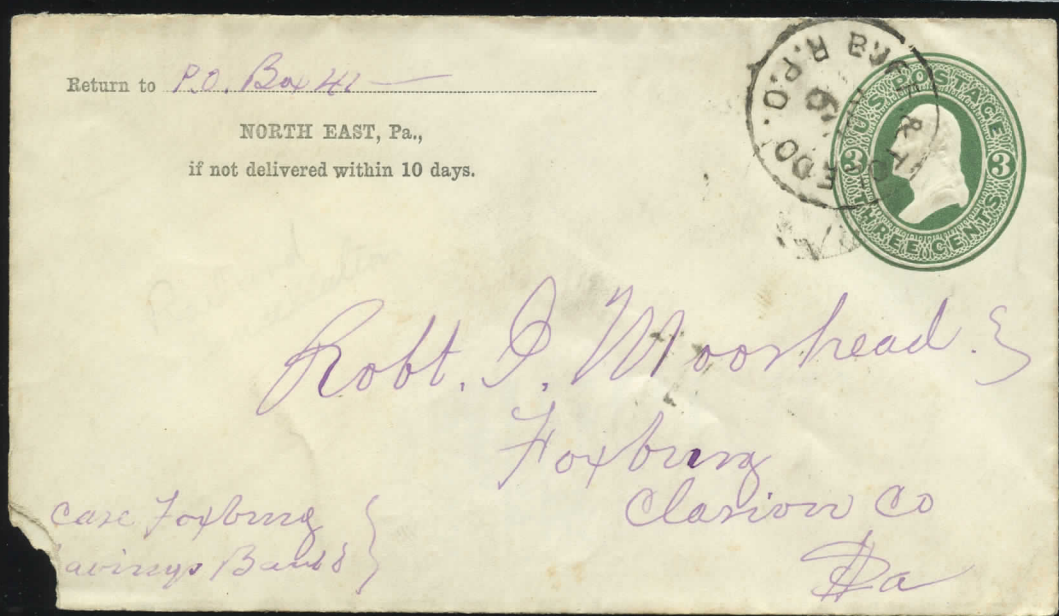 Return to P.O. Box 41
NORTH EAST, Pa.,
if not delivered within 10 days.
BUFF & TOLEDO R.P.O.
9
U.S. POSTAGE
3 3
THREE CENTS
Robt. I. Moorhead
Foxburg
Clarion Co
Pa
Care Foxburg
avings Bank